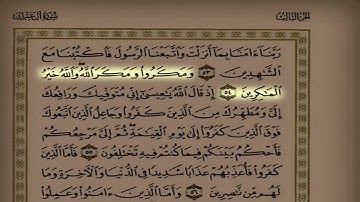 سورة آل عمران
الجزء الثالث
رَبَّنَا ءَامَنَّا بِمَا أَنزَلْتَ وَاتَّبَعْنَا الرَّسُولَ فَاكْتُبْنَا مَعَ
الشَّٰهِدِينَ ٥٣ وَمَكَرُوا۟ وَمَكَرَ اللَّهُ وَاللَّهُ خَيْرُ
الْمَٰكِرِينَ ٥٤ إِذْ قَالَ اللَّهُ يَٰعِيسَىٰٓ إِنِّى مُتَوَفِّيكَ وَرَافِعُكَ
إِلَىَّ وَمُطَهِّرُكَ مِنَ الَّذِينَ كَفَرُوا۟ وَجَاعِلُ الَّذِينَ اتَّبَعُوكَ
فَوْقَ الَّذِينَ كَفَرُوٓا۟ إِلَىٰ يَوْمِ الْقِيَٰمَةِ ثُمَّ إِلَىَّ مَرْجِعُكُمْ
فَأَحْكُمُ بَيْنَكُمْ فِيمَا كُنتُمْ فِيهِ تَخْتَلِفُونَ ٥٥ فَأَمَّا الَّذِينَ
كَفَرُوا۟ فَأُعَذِّبُهُمْ عَذَابًا شَدِيدًا فِى الدُّنْيَا وَالْءَاخِرَةِ وَمَا
لَهُم مِّن نَّٰصِرِينَ ٥٦ وَأَمَّا الَّذِينَ ءَامَنُوا۟ وَعَمِلُوا۟